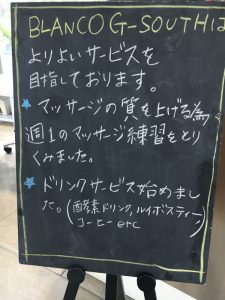 BLANCO G-SOUTHは
よりよいサービスを
目指しております。
マッサージの質を上げる為
週1のマッサージ練習をとり
くみました。
ドリンクサービス始めまし
た。(酵素ドリンク,ルイボスティー
コーヒー etc)